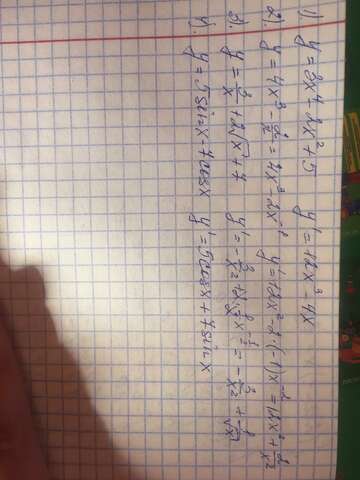 1). y = 3x⁴ - 2x² + 5   y' = 12x³ - 4x
2). y = 4x³ - 2/x = 4x³ - 2x⁻¹   y' = 12x² - 2·(-1)x⁻² = 12x² + 2/x²
3). y = 3/x + 2√x + 7   y' = -3/x² + 2·1/2 x^(-1/2) = -3/x² + 1/√x
4). y = 5sinx - 7cosx   y' = 5cosx + 7sinx